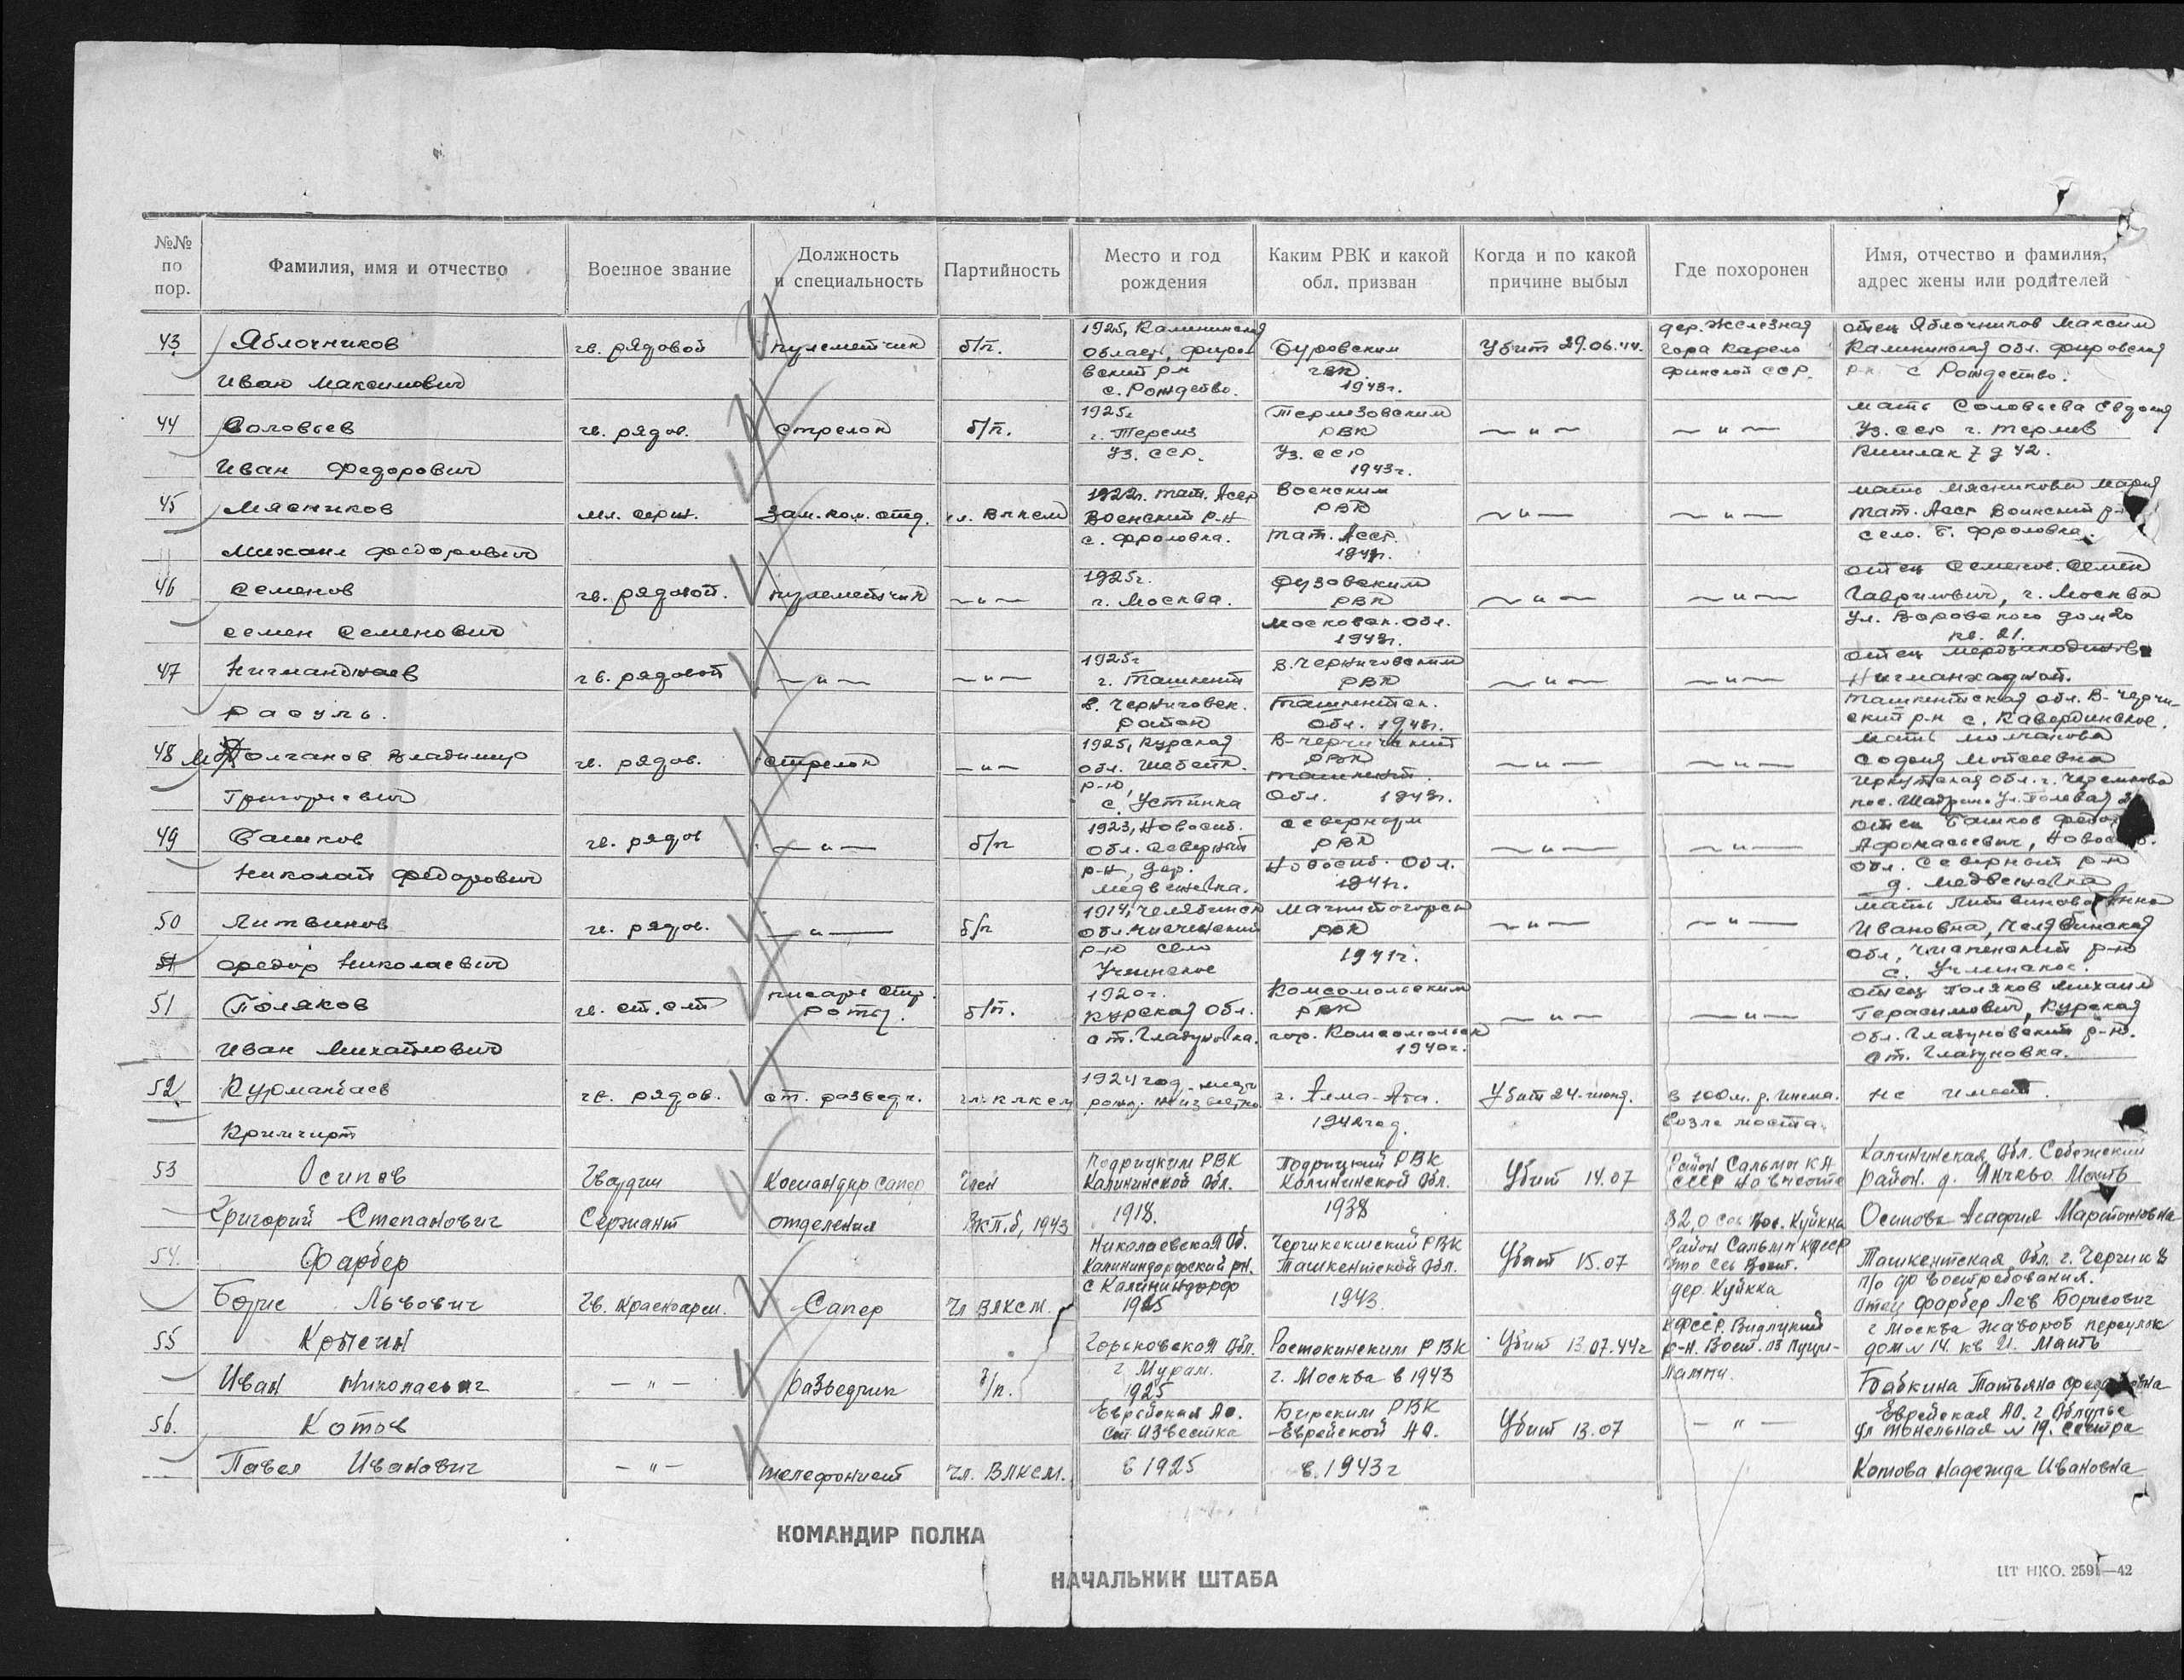 №№ по пор. Фамилия, имя и отчество Военное звание Должность и специальность Партийность Место и год рождения Каким РВК и какой обл. призван Когда и по какой причине выбыл Где похоронен Имя, отчество и фамилия, адрес жены или родителей
43 Яблочников гв. рядовой пулеметчик б/п. 1925, Калининская Область, фиров Буровским Убит 29.06.44. дер. Железная гора Карело отец Яблочников Максим Калининская обл. фировский
Иван Максимович вский р-н с. Рождество. 1943г. финской ССР. р-н с Рождество.
44 Соловьев гв. рядов. стрелок б/п. 1925г г. Термез Термезовским РВК — " — — " — мать Соловьева Евдокия Уз. сср г. термез
Иван Федорович Уз. ССР. Уз. сср 1943г. Кишлак 7 д 42.
45 Мясников мл. серж. зам. ком. отд. чл. Влксм 1922г. тат. Асср Военский р-н Военским РВК — " — — " — мать мясникова мария тат. Асср Воинский р-н
Михаил федорович с. фроловка. тат. Асср. 1941г. село. Б. фроловка.
46 Семенов гв. рядовой. пулеметчик — " — 1925г. г. Москва. РВК — " — — " — отец Семенов. Семен Гаврилович, г. Москва
семен Семенович московск. обл. 1943г. Ул. Воровского дом 20 кв. 21.
47 Нигманджаев гв. рядовой — " — — " — 1925г г. Ташкент В. Черчиговским РВК — " — — " — отец
расуль. в. Черчиговск. район Ташкентск. обл. 1943г. Ташкентская обл. В-Черчи-ский р-н с.
48 Молчанов Владимир гв. рядов. стрелок — " — 1925, Курская обл. Шебек. В-Черчикский РВК — " — — " — мать молчанова София Мотсеевна
Григорьевич р-н, с. Устинка Ташкент. Обл. 1943г. Иркутская обл. г. Черемхово пос. Шадрин. Ул. Полевая
49 Башков гв. рядов — " — б/п 1923, Новосиб. обл. Северный Северным РВК — " — — " — отец Башков федор Афонасьевич,
Николай Федорович р-н, дер. медвежевка. Новосиб. Обл. 1941г. обл. Северный р-н д. Медвежевка
50 Литвинов гв. рядов. — " — б/п 1914, Челябинск обл. Магнитогорск РВК — " — — " — мать Литвинова Анна Ивановна, Челябинская
федор Николаевич р-н село Учинское 1941г. обл, р-н с.
51 Поляков гв. ст. с-т писарь стр. роты. б/п. 1920г. Курская Обл. Комсомольским РВК — " — — " — отец Поляков Михаил Герасимович, Курская
Иван Михайлович ст. Глазуновка. гор. Комсомольск 1940г. обл. Глазуновский р-н. ст. Глазуновка.
52 Курманбаев гв. рядов. ст. разведч. чл. влксм 1924 год, место рожд. неизвестно г. Алма-Ата. Убит 24-июня. в 100 м. р. Инема. не имеет.
1942 год. возле моста.
53 Осипов Гвардии Командир сапер Член Подрицким РВК Калининской Обл. Подрицкий РВК Калининской Обл. Убит 14.07 Район Сальми КФ СССР на высоте Калининская Обл. Себежский район. д. Янчево Мать
Григорий Степанович Сержант отделения ВКП.б, 1943 1918. 1938 82,0 сев Вос. Куйкка Осипова Агафия Мартыновна
54. Фарбер Николаевская Об. Калининдорфский рн. Чергикекшский РВК Ташкентской Обл. Убит 15.07 Район Сальми КФССР Юго сев Вост. Ташкентская Обл. г. Черчик 8
Борис Львович Гв. Красноарм. Сапер Чл ВЛКСМ. с Калининдорф 1925 1943 дер. Куйкка п/о до востребования. Отец Фарбер Лев Борисович
55 Горьковская Обл. Ростокинским РВК Убит 13.07.44г КФССР. Видлицкий р-н. Вост. оз г Москва Жаворов переулок дом № 14. кв 21. Мать
Иван Николаевиг — " — разведчик б/п. г Муром. 1925 г. Москва в 1943 Бабкина Татьяна
56. Котов Еврейская Ао. Ст Известка Бирским РВК Еврейской АО. Убит 13.07 — " — Еврейская АО. г Облучье Ул Тонельная № 19. Сестра
Павел Иванович — " — телефонист Чл. ВЛКСМ. в 1925 в. 1943 г Котова Надежда Ивановна
КОМАНДИР ПОЛКА
НАЧАЛЬНИК ШТАБА
ЦТ НКО. 2591—42